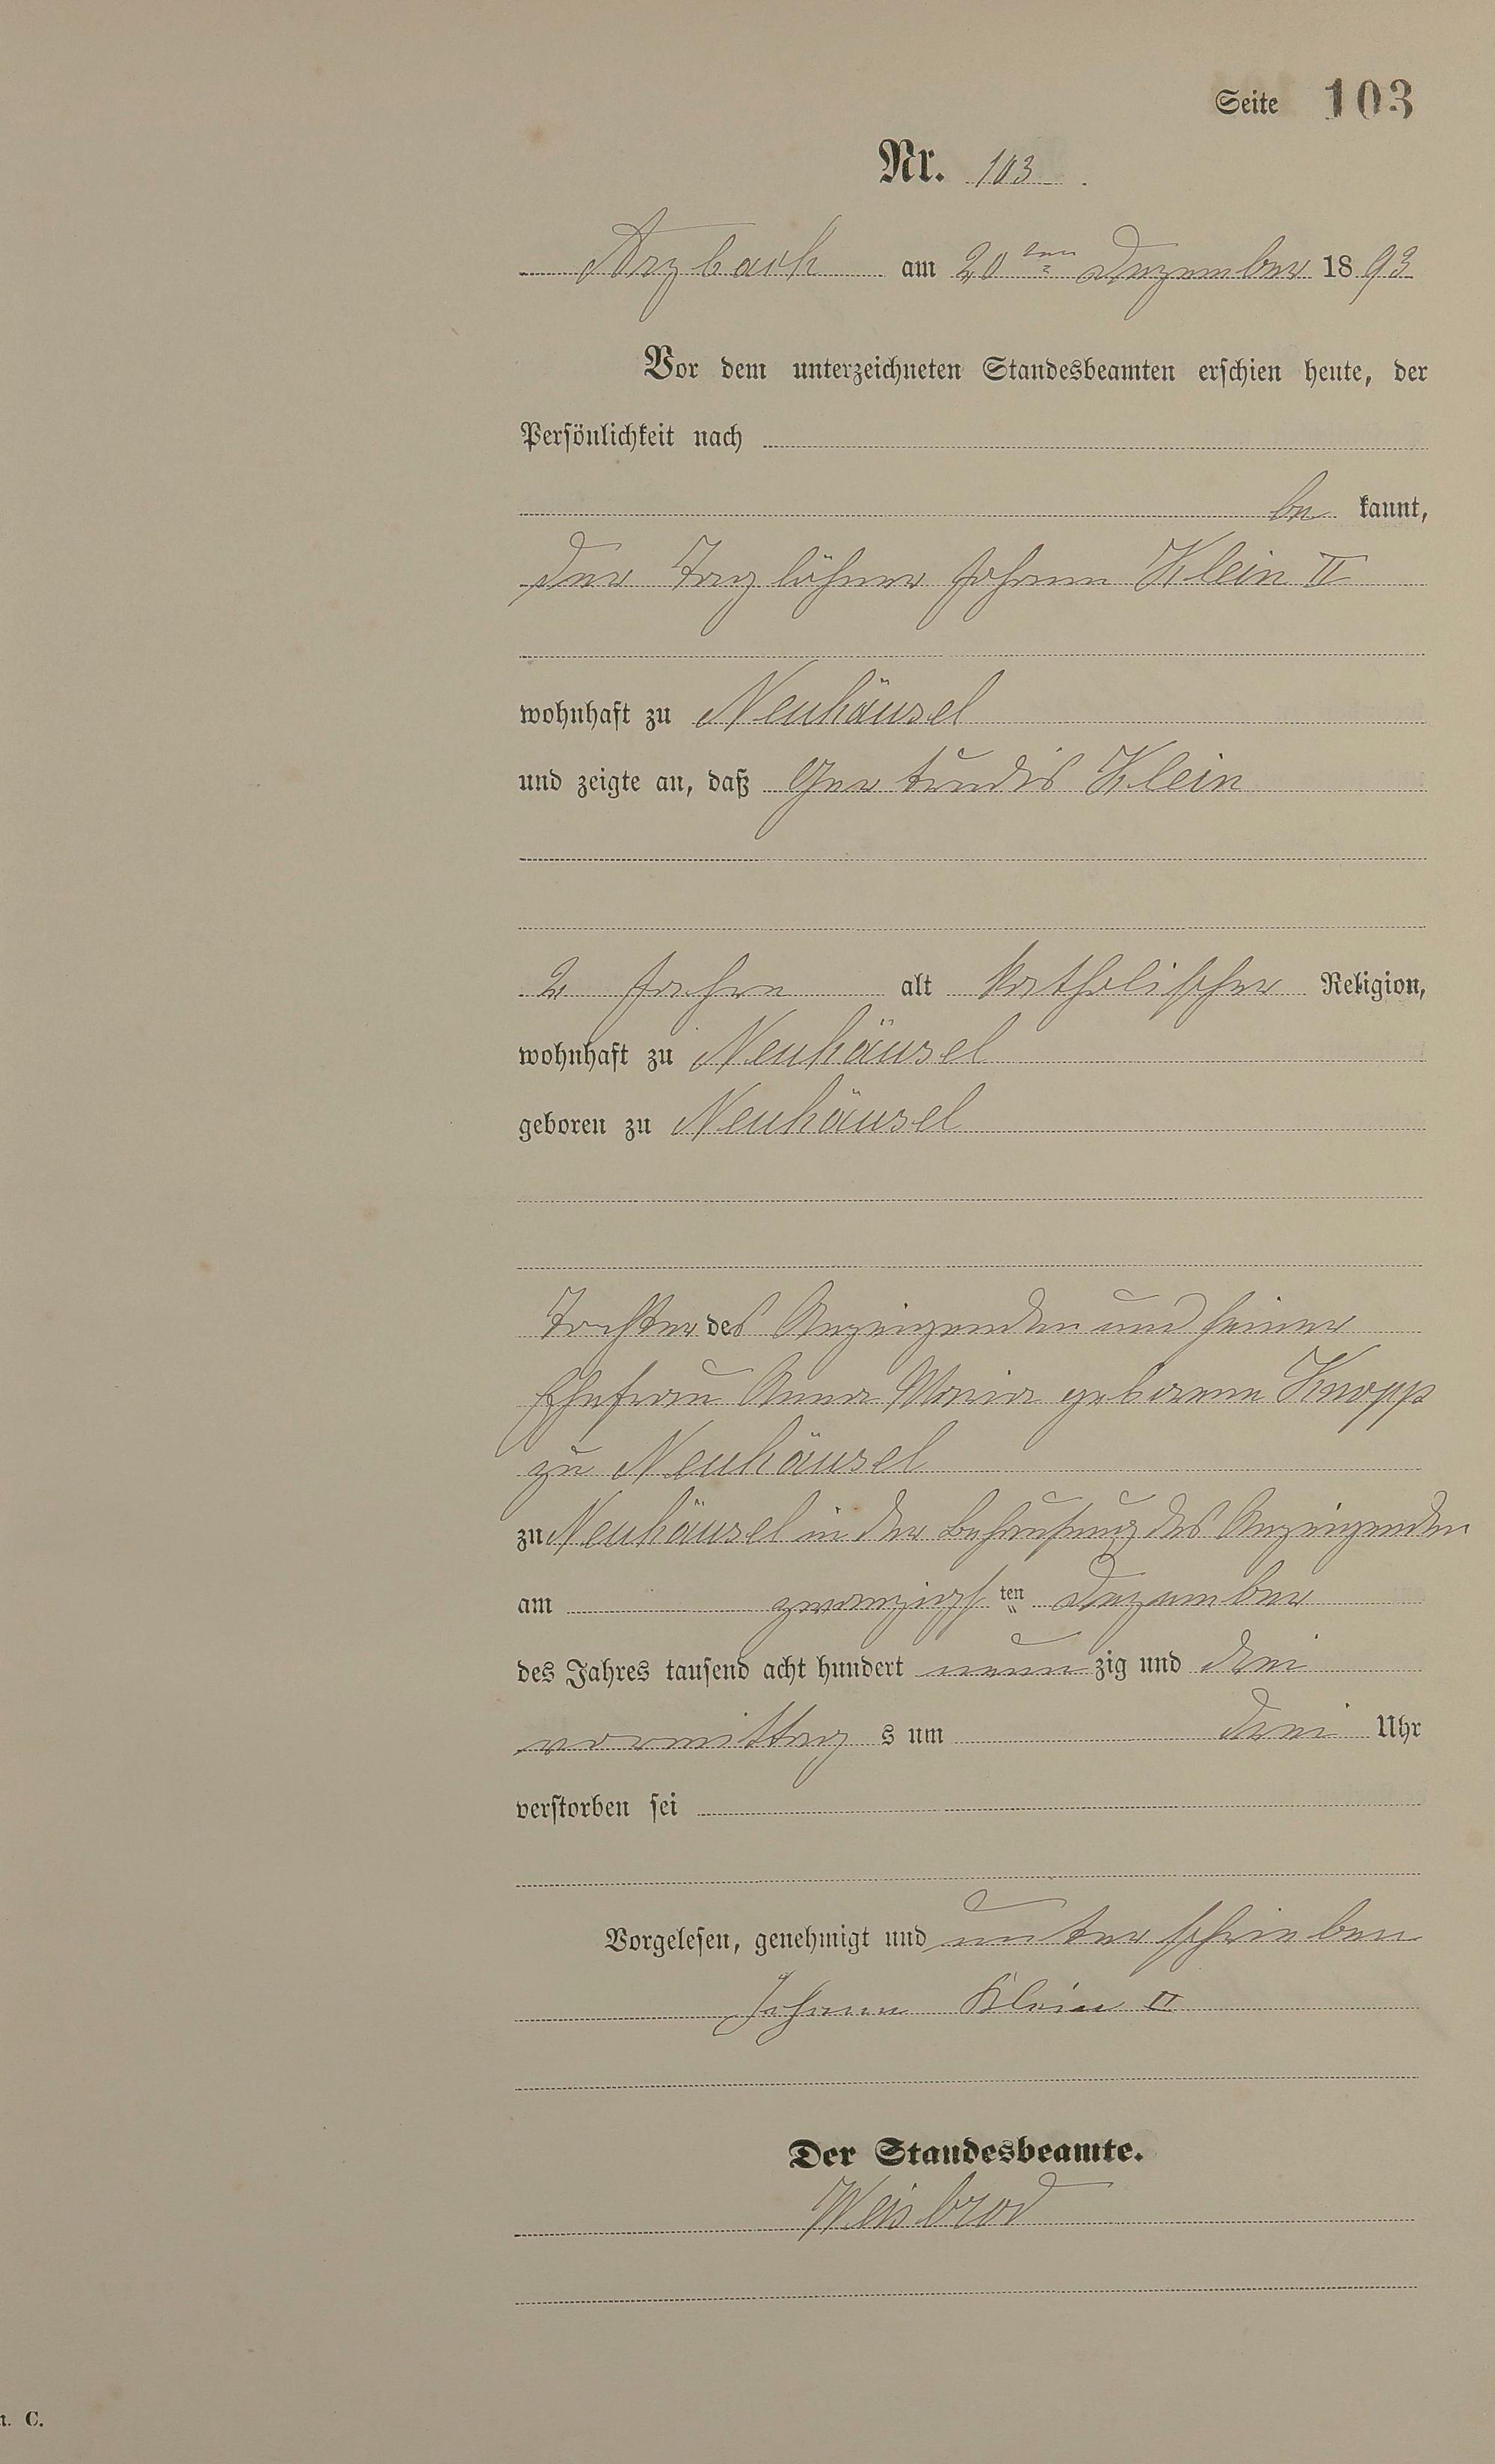 Seite 103
Nr. 103.
Arzbach am 20ten Dezember 1893
Vor dem unterzeichneten Standesbeamten erschien heute, der
Persönlichkeit nach
be kannt,
der Taglöhner Johann Klein II
wohnhaft zu Neuhäusel
und zeigte an, daß Gertrudis Klein
2 Jahre alt katholischer Religion,
wohnhaft zu Neuhäusel
geboren zu Neuhäusel
Tochter des Anzeigenden und seiner
Ehefrau Anna Maria geborene Knopp
zu Neuhäusel
zu Neuhäusel in der Behausung des Anzeigenden
am zwanzigsten Dezember
des Jahres tausend acht hundert neunzig und drei
vormittags um drei Uhr
verstorben sei
Vorgelesen, genehmigt und unterschrieben
Johann Klein II
Der Standesbeamte.
Weisbrod
n. C.